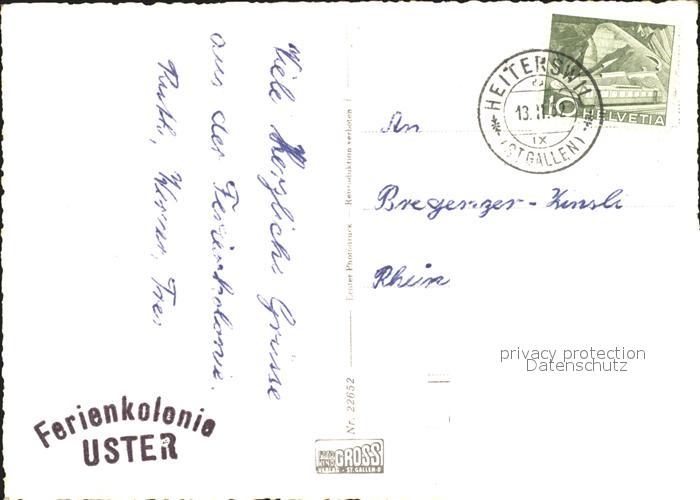 Viele Herzliche Grüsse
aus der Ferienkolonie.
Ruth, Werner,
Ferienkolonie
USTER
Nr. 22652
Echter Photodruck - Reproduktion verboten
GROSS
VERLAG - ST. GALLEN
HEITERSWIL
13.II.
IX
(ST GALLEN)
10
HELVETIA
An
Bregenzer - Zinsli
Rhein
privacy protection
Datenschutz